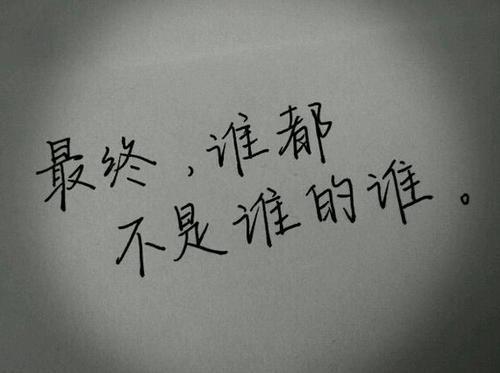 最终,谁都
不是谁的谁。